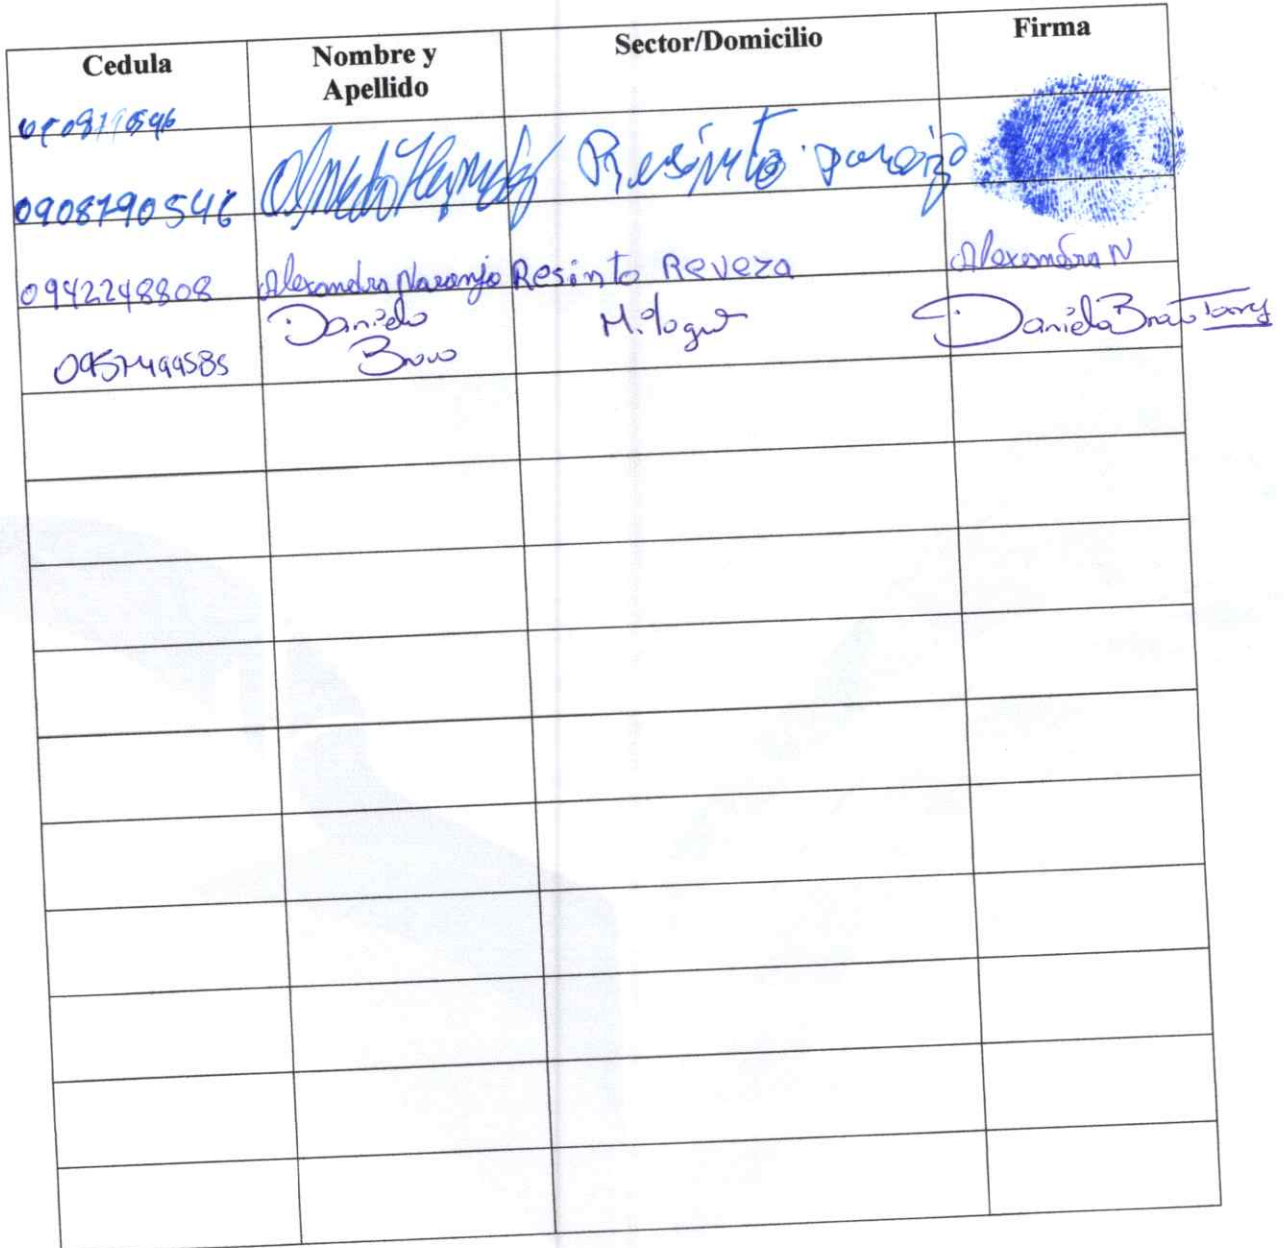 Cedula Nombre y Apellido Sector/Domicilio Firma
0908790546 Olmedo Resinto
0942248808 Alexandra Naranjo Resinto Reveza Alexandra N
0957499585 Daniela Bravo Milagro Daniela Bravo Torres